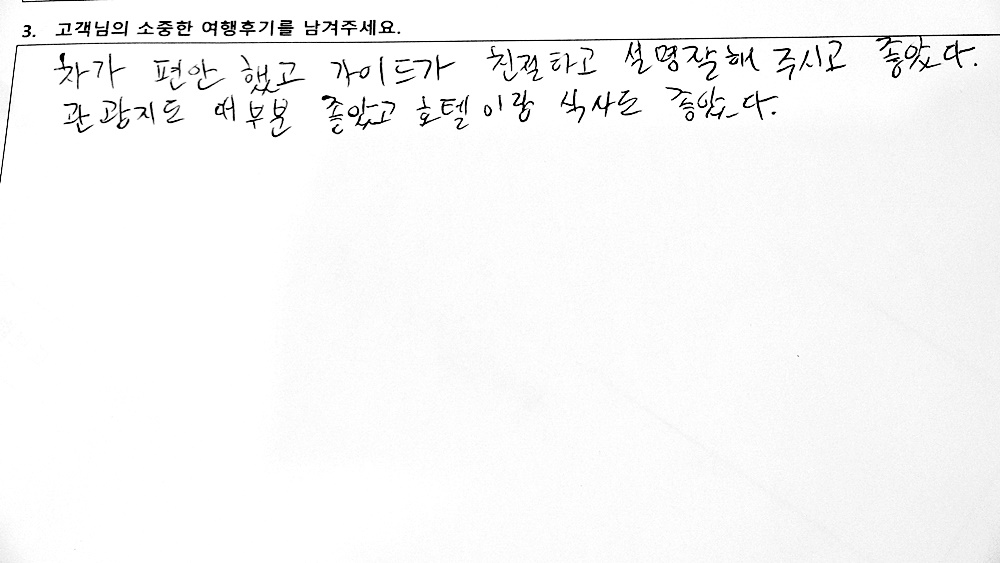 3. 고객님의 소중한 여행후기를 남겨주세요.
차가 편안했고 가이드가 친절하고 설명잘해 주시고 좋았다.
관광지도 대부분 좋았고 호텔이랑 식사도 좋았다.